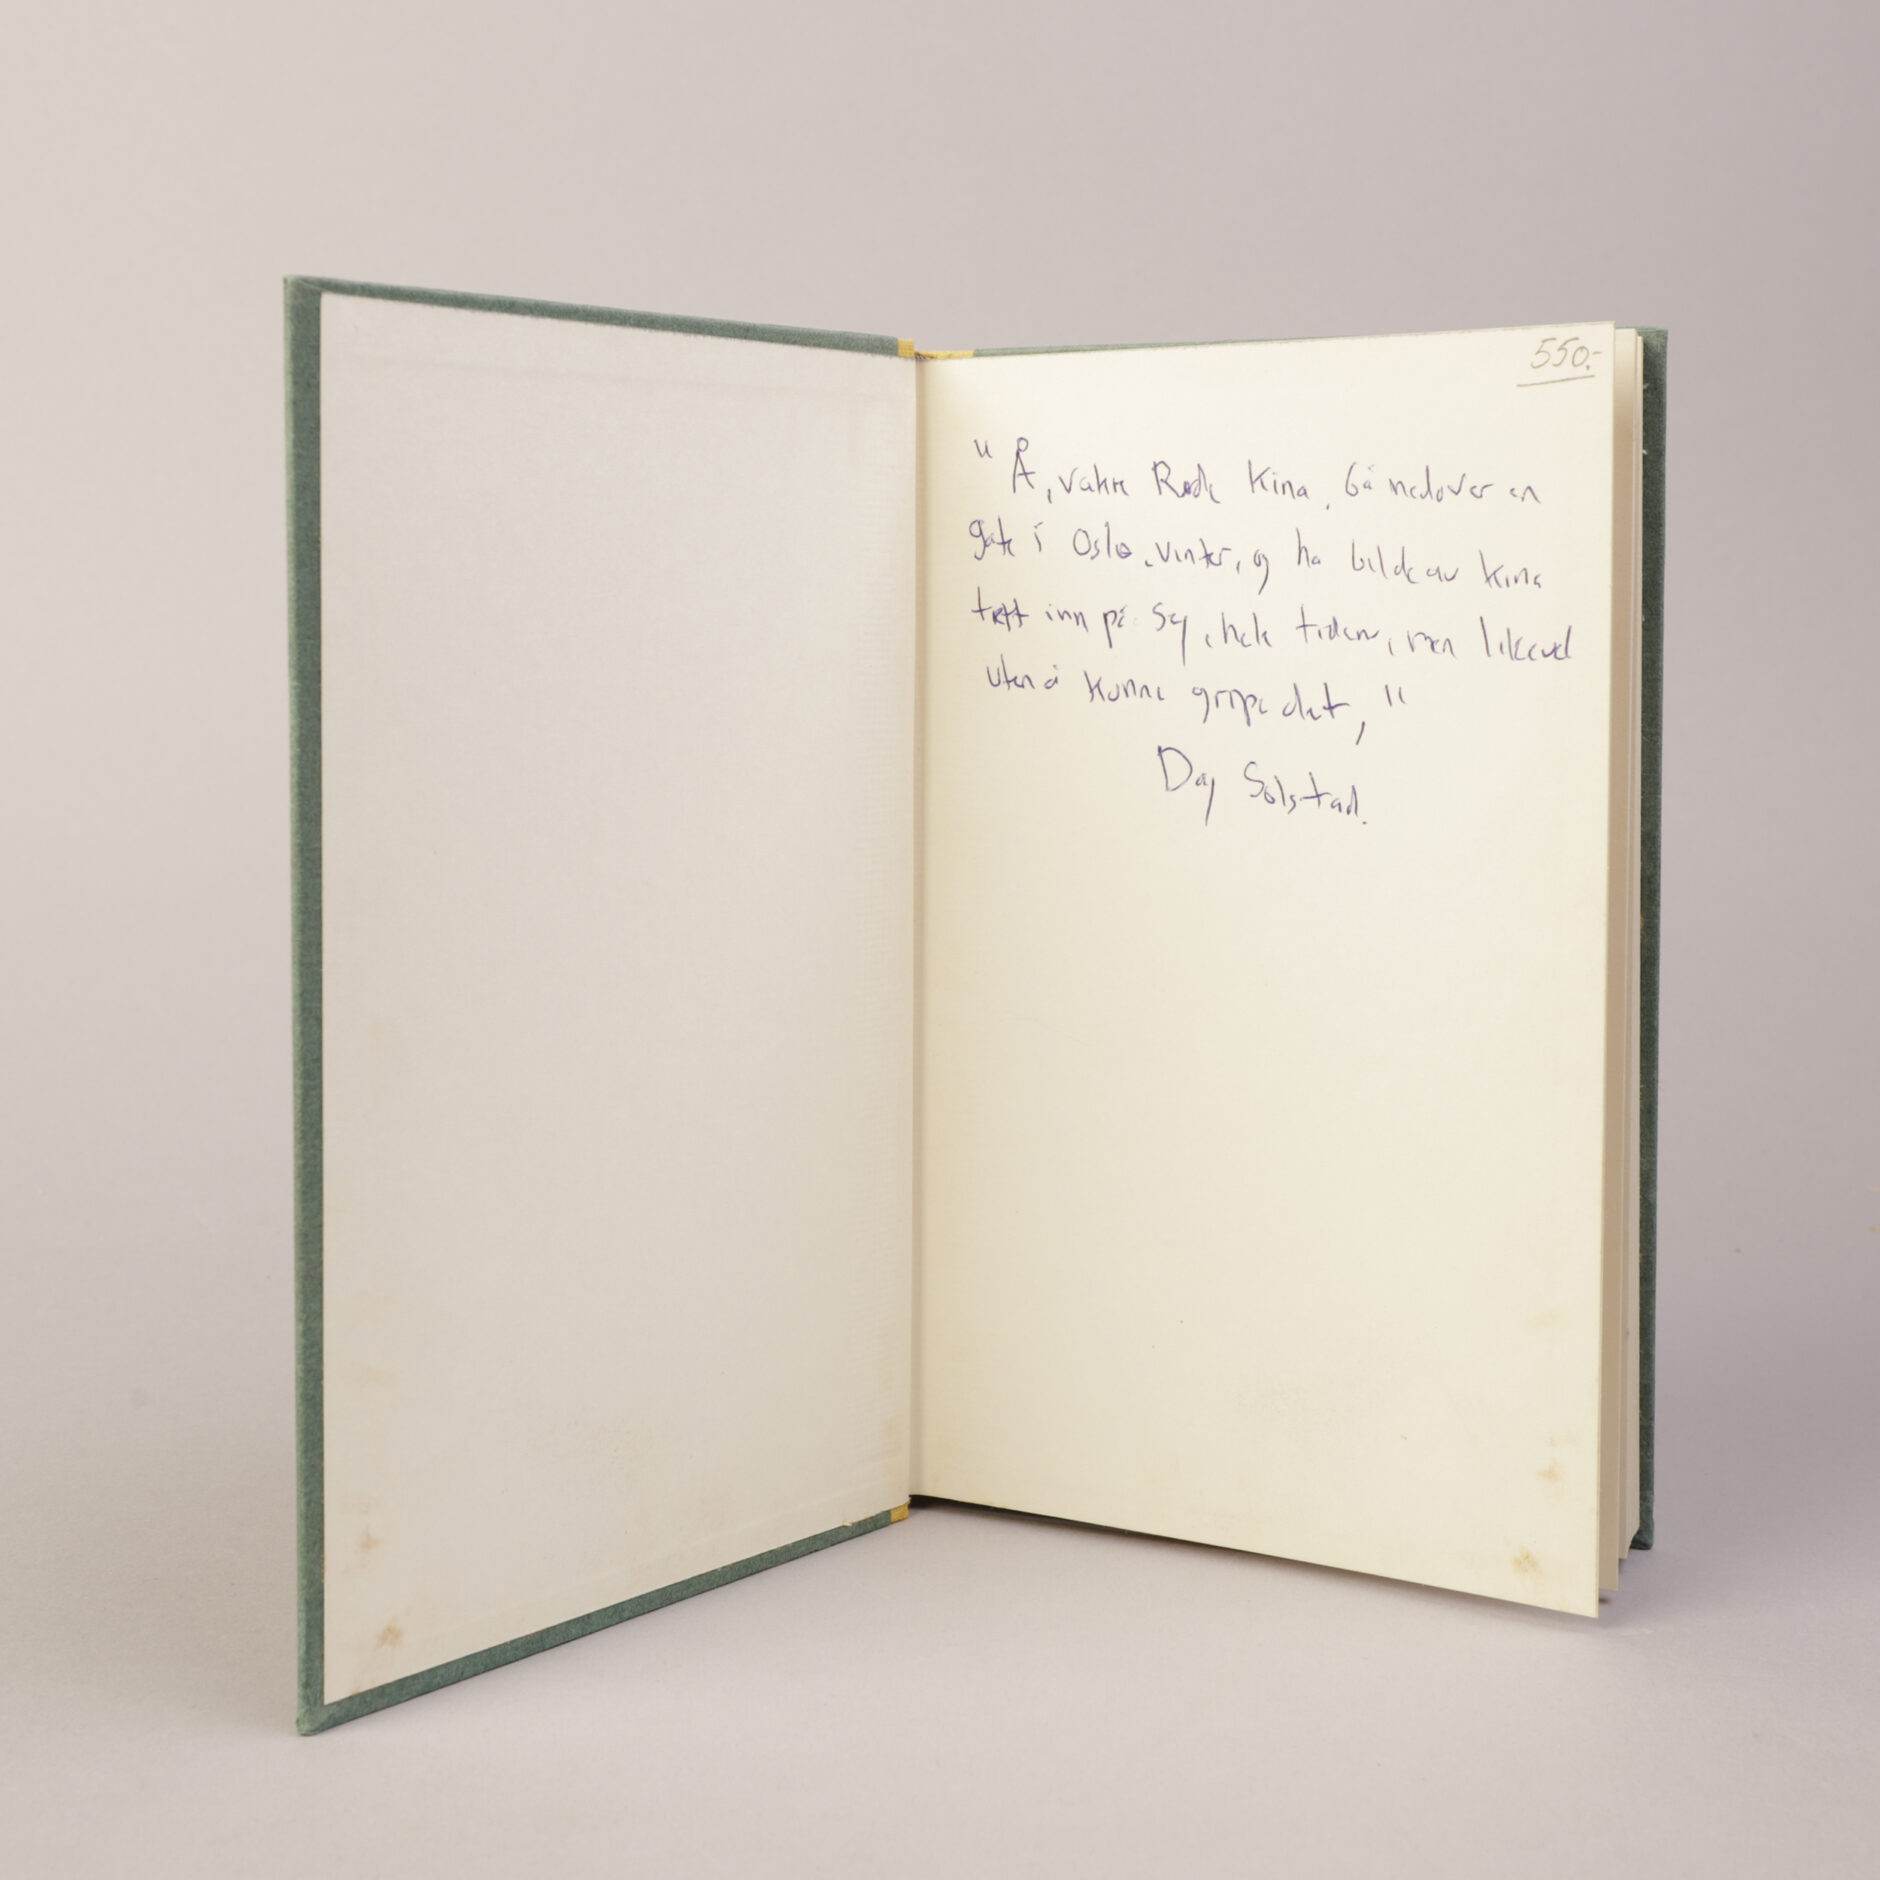 550.-
"Å, vakre Røde Kina. Gå nedover en
gate i Oslo, vinter, og ha bilde av Kina
tett inn på seg, hele tiden, men likevel
uten å kunne gripe det,"
Dag Solstad.